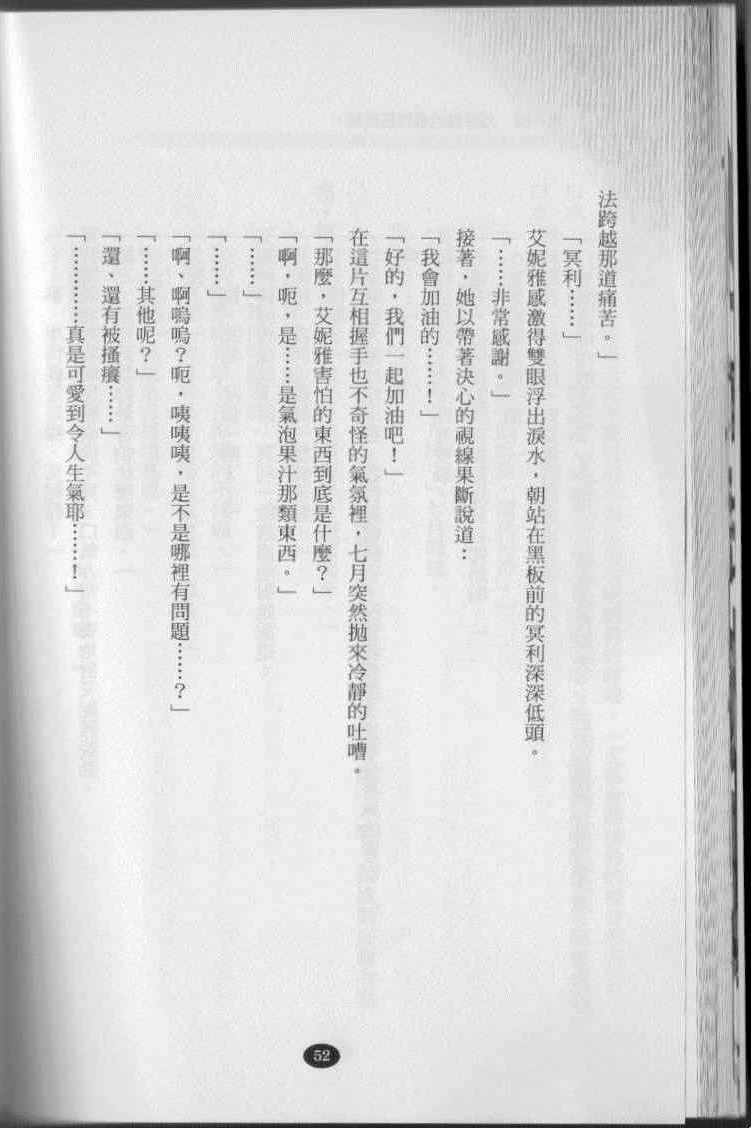 法跨越那道痛苦。」
「冥利……」
艾妮雅感激得雙眼浮出淚水，朝站在黑板前的冥利深深低頭。
「……非常感謝。」
接著，她以帶著決心的視線果斷說道：
「我會加油的……！」
「好的，我們一起加油吧！」
在這片互相握手也不奇怪的氣氛裡，七月突然拋來冷靜的吐嘈。
「那麼，艾妮雅害怕的東西到底是什麼？」
「啊，呃，是……是氣泡果汁那類東西。」
「……」
「……」
「啊，啊嗚嗚？呃，咦咦咦，是不是哪裡有問題……？」
「……其他呢？」
「還、還有被搔癢……」
「…………真是可愛到令人生氣耶……！」
52